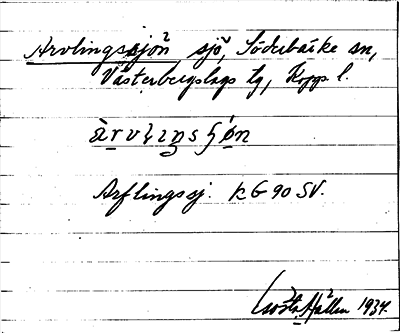 Arvlingssjön sjö, Söderbärke sn,
Västerbergslags tg, Kopp. l.
Arflingssj. KG 90 SV.
Gösta Hallin 1934.